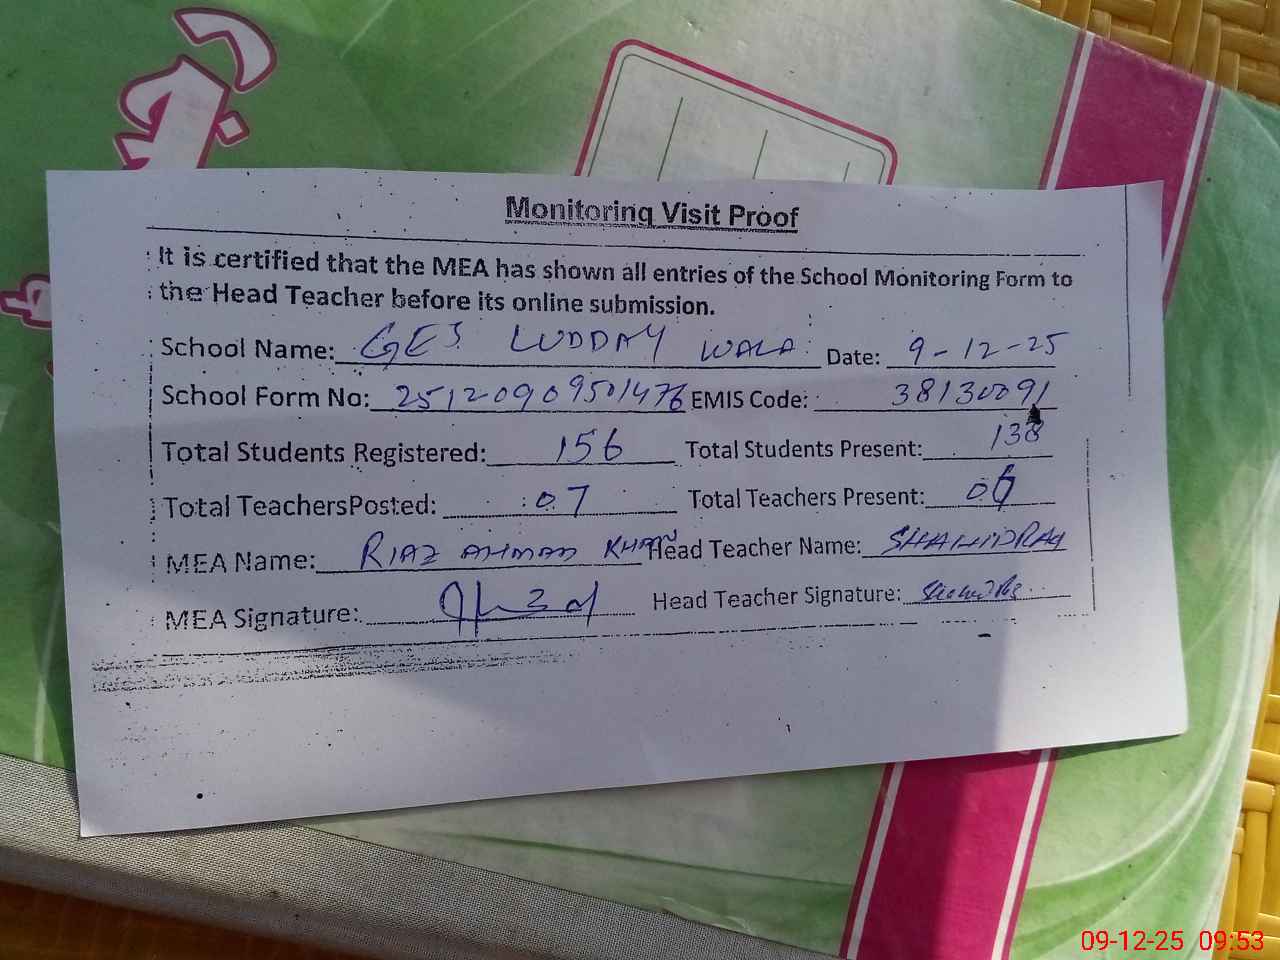 Monitoring Visit Proof
It is certified that the MEA has shown all entries of the School Monitoring Form to
the Head Teacher before its online submission.
School Name: GES LUDDAY WALA Date: 9-12-25
School Form No: 25120909501476 EMIS Code: 38130091
Total Students Registered: 156 Total Students Present: 138
Total TeachersPosted: 07 Total Teachers Present: 06
MEA Name: RIAZ AHMAD KHAN Head Teacher Name:
MEA Signature: Head Teacher Signature:
09-12-25 09:53